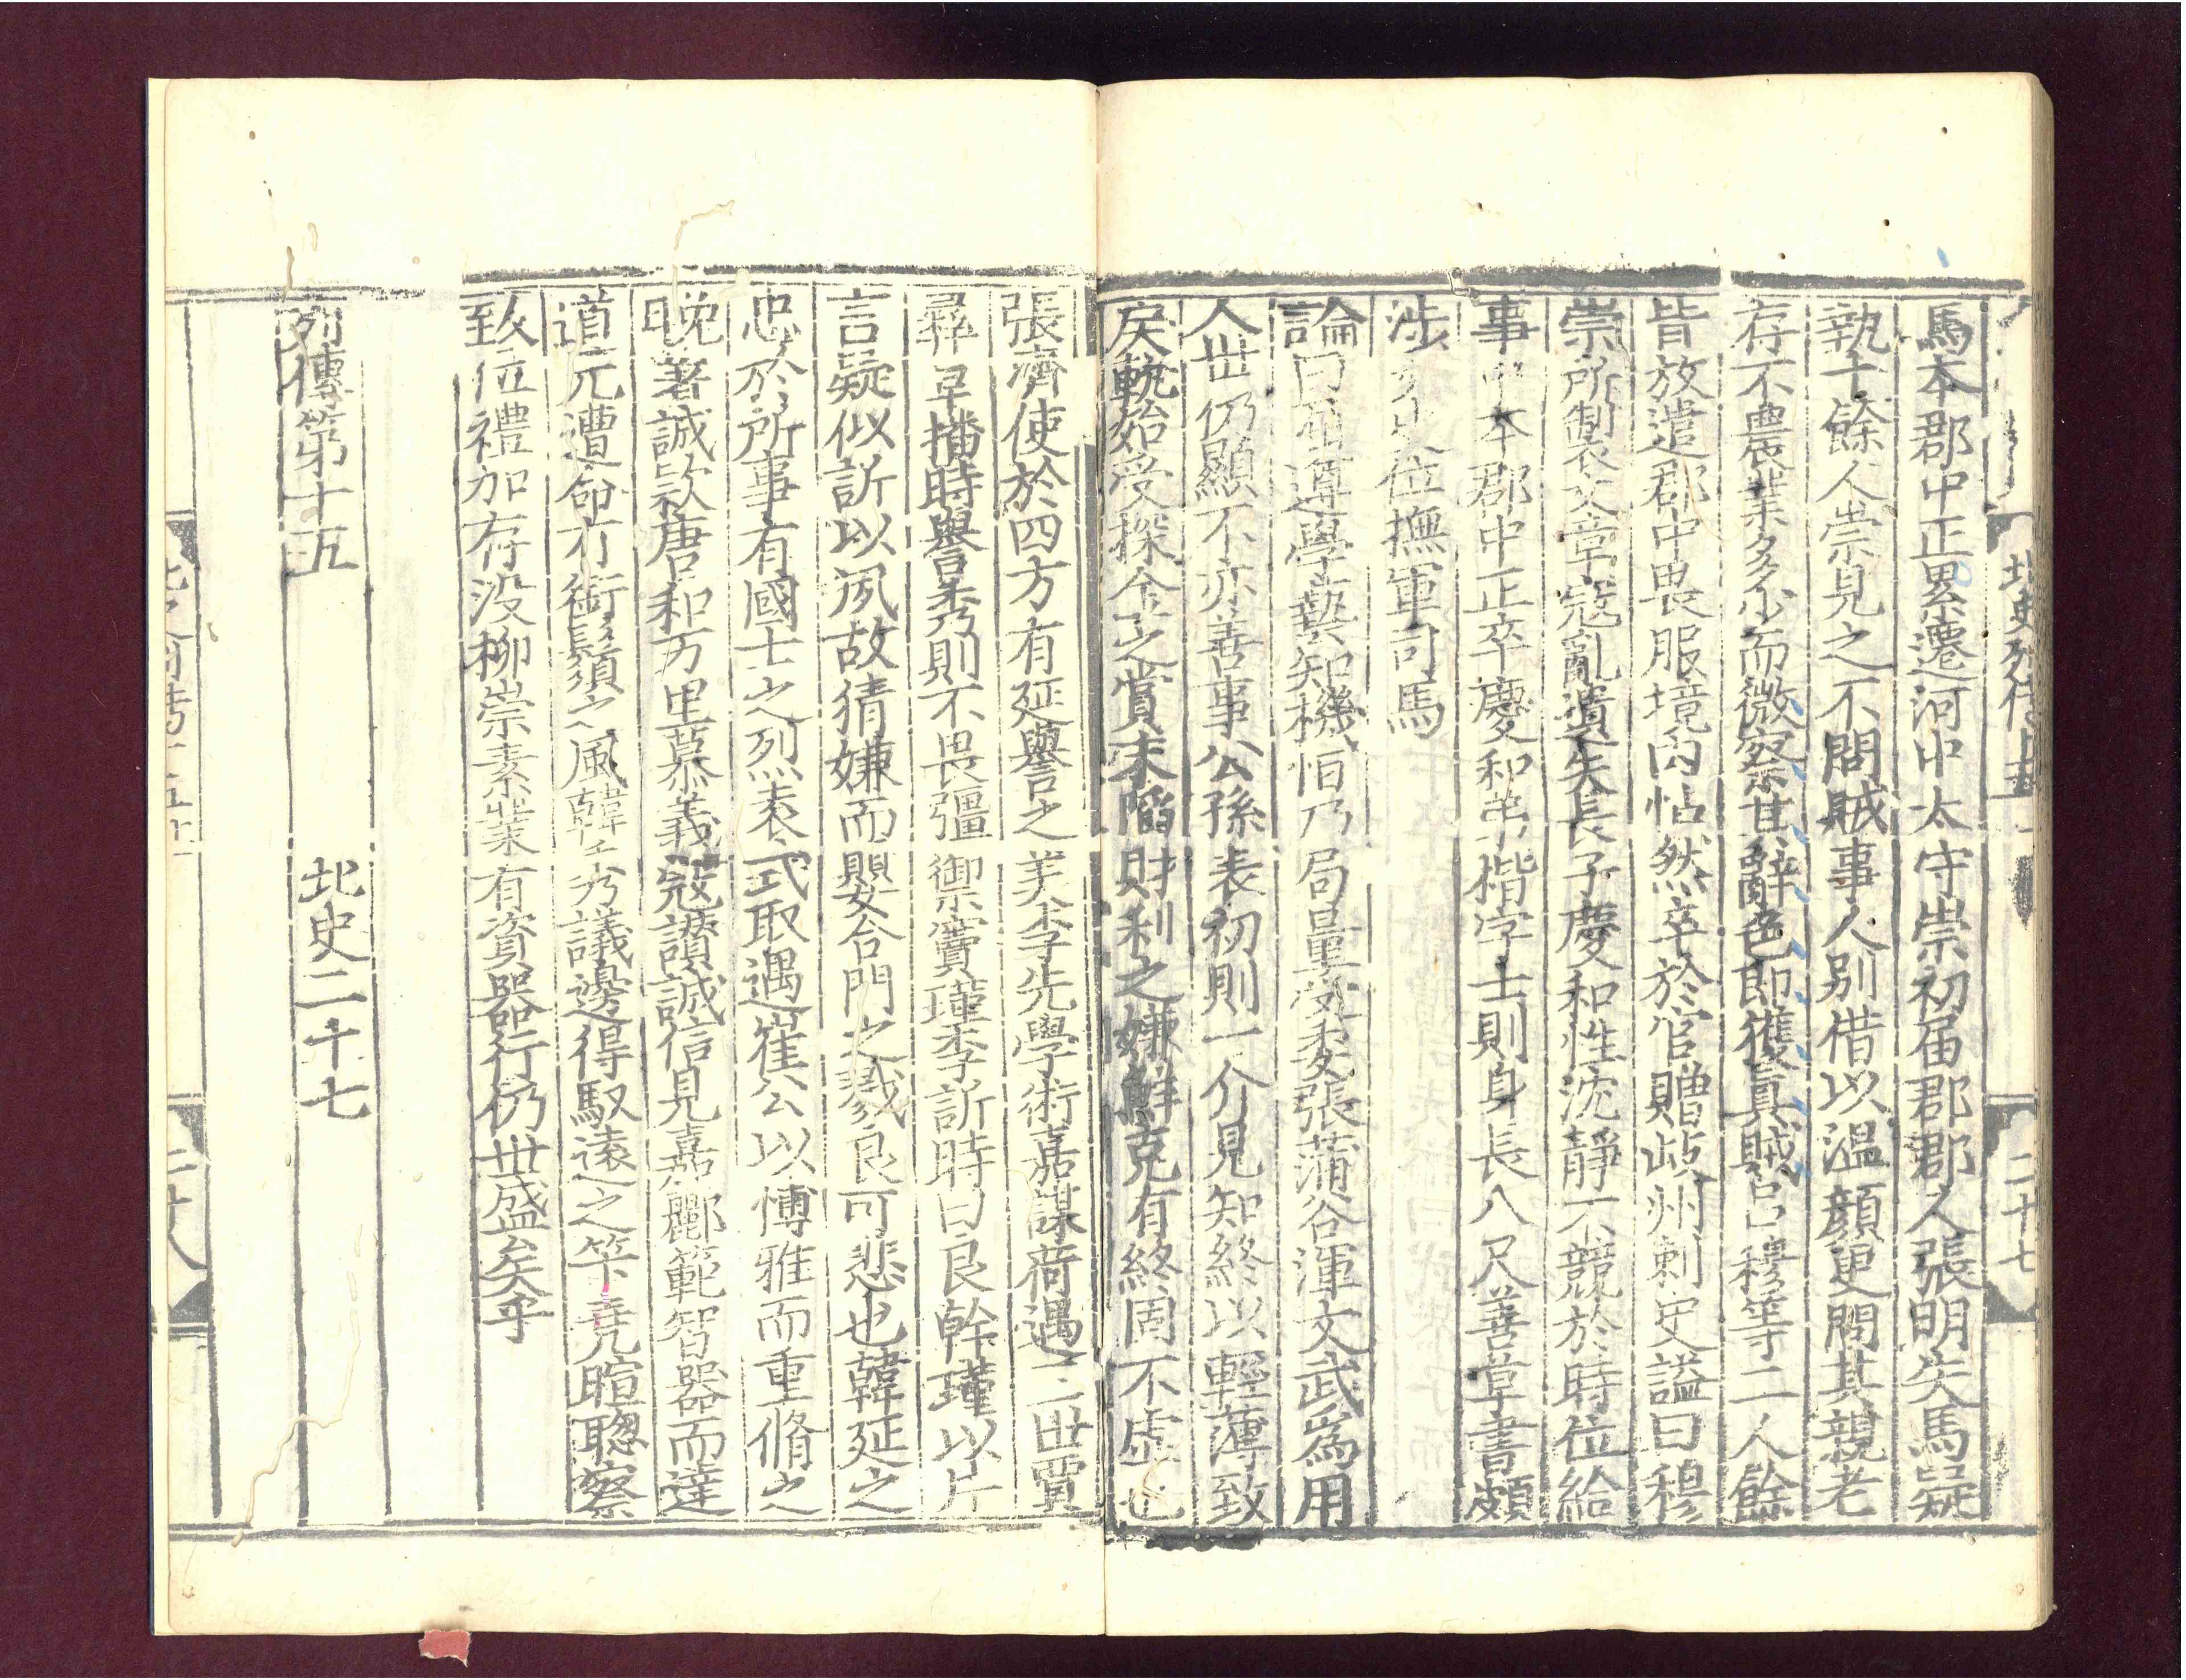 馬本郡中正累遷河中太守崇初届郡郡人張明失馬疑
執十餘人崇見之不問賊事人別借以温顔更問其親老
存不農業多少而微察其辭色即獲真賊呂穆等二人餘
皆放遣郡中畏服境内怗然卒於官贈岐州刺史謚曰穆
崇所製文章寇亂遺失長子慶和性沈靜不競於時位給
事中本郡中正卒慶和弟楷字士則身長八尺善草書頗
涉文史位撫軍司馬
論曰屈遵學藝知機恒乃局量受委張蒲谷渾文武為用
人世仍顯不亦善事公孫表初則一介見知終以輕薄致
戾軌始受探金之賞末陷財利之嫌鮮克有終固不虚也
張濟使於四方有延譽之美李先學術嘉謀荷遇三世賈
彛早播時譽秀則不畏彊禦竇瑾李訢時曰良幹瑾以片
言疑似訢以夙故猜嫌而嬰合門之戮良可悲也韓延之
忠於所事有國士之烈袁式取遇崔公以博雅而重脩之
晚著誠款唐和万里慕義寇讚誠信見嘉酈範智器而達
道元遭命有銜鬚之風韓秀議邊得馭遠之筭堯暄聦察
致位禮加存没柳崇素業有資器行仍世盛矣乎
列傳第十五 北史二十七
北史列传十五 二十七
二十八